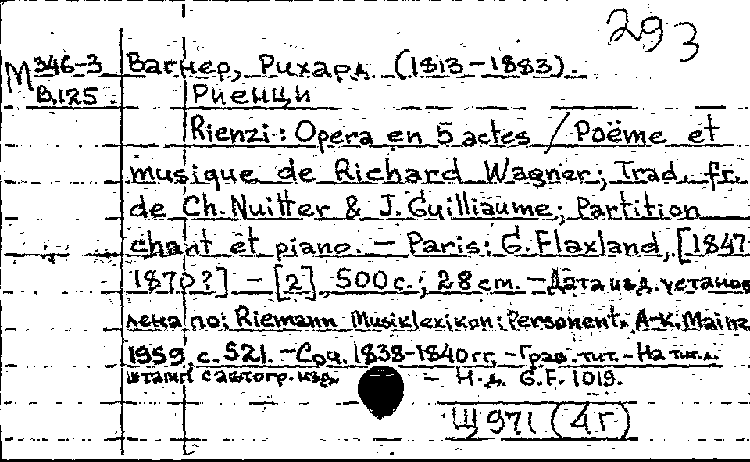 293
М 346-3 Вагнер, Рихард (1813-1883).
В.125 Риенци
Rienzi: Opera en 5 actes / Poëme et
musique de Richard Wagner; Trad. fr.
de Ch. Nuitter & J. Guilliaume; Partition
chant et piano. - Paris: G. Flaxland, [1847-
1870?] - [2], 500 с.; 28 cm. - Дата изд. установ
лена по: Riemann Musiklexikon: Personent. A-K. Mainz
1959, с. 521. - Соч. 1838-1840 гг. - Грав. тит. - На тит. л.
штамп с автогр. изд. - Н.д. G.F. 1019.
Щ 971 (4Г)